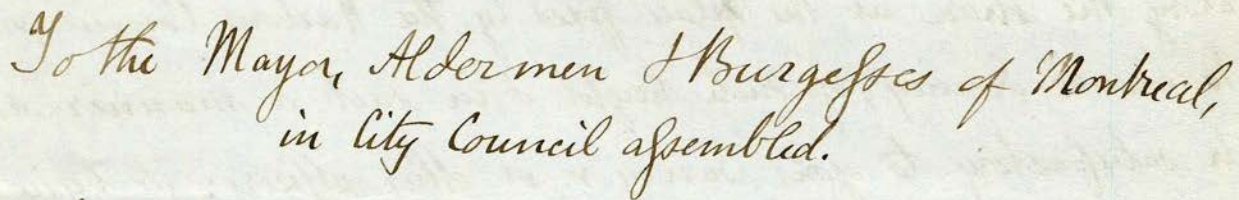 To the Mayor, Aldermen & Burgesses of Montreal,
in City Council assembled.